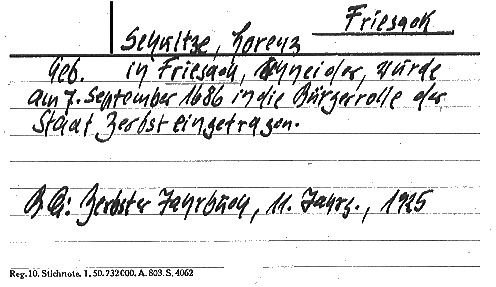 Friesack
Schultze, Lorenz
Geb. in Friesack, Schneider, wurde
am 7. September 1686 in die Bürgerrolle der
Stadt Zerbst eingetragen.
B Q: Zerbster Jahrbuch, 11. Jahrg., 1925
Reg. 10. Stichnote. 1. 50. 732000. A. 803. S. 4062